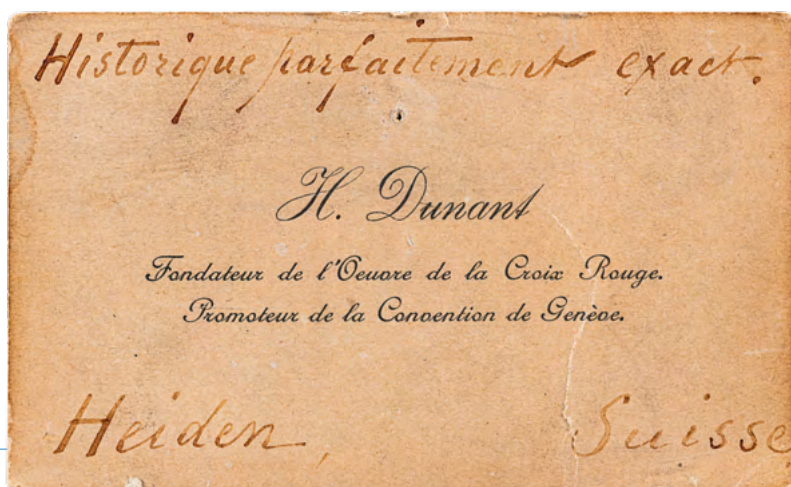 Historique parfaitement exact.
H. Dunant
Fondateur de l'Oeuvre de la Croix Rouge.
Promoteur de la Convention de Genève.
Heiden, Suisse